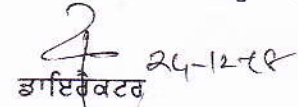 24-12-18
ਡਾਇਰੈਕਟਰ